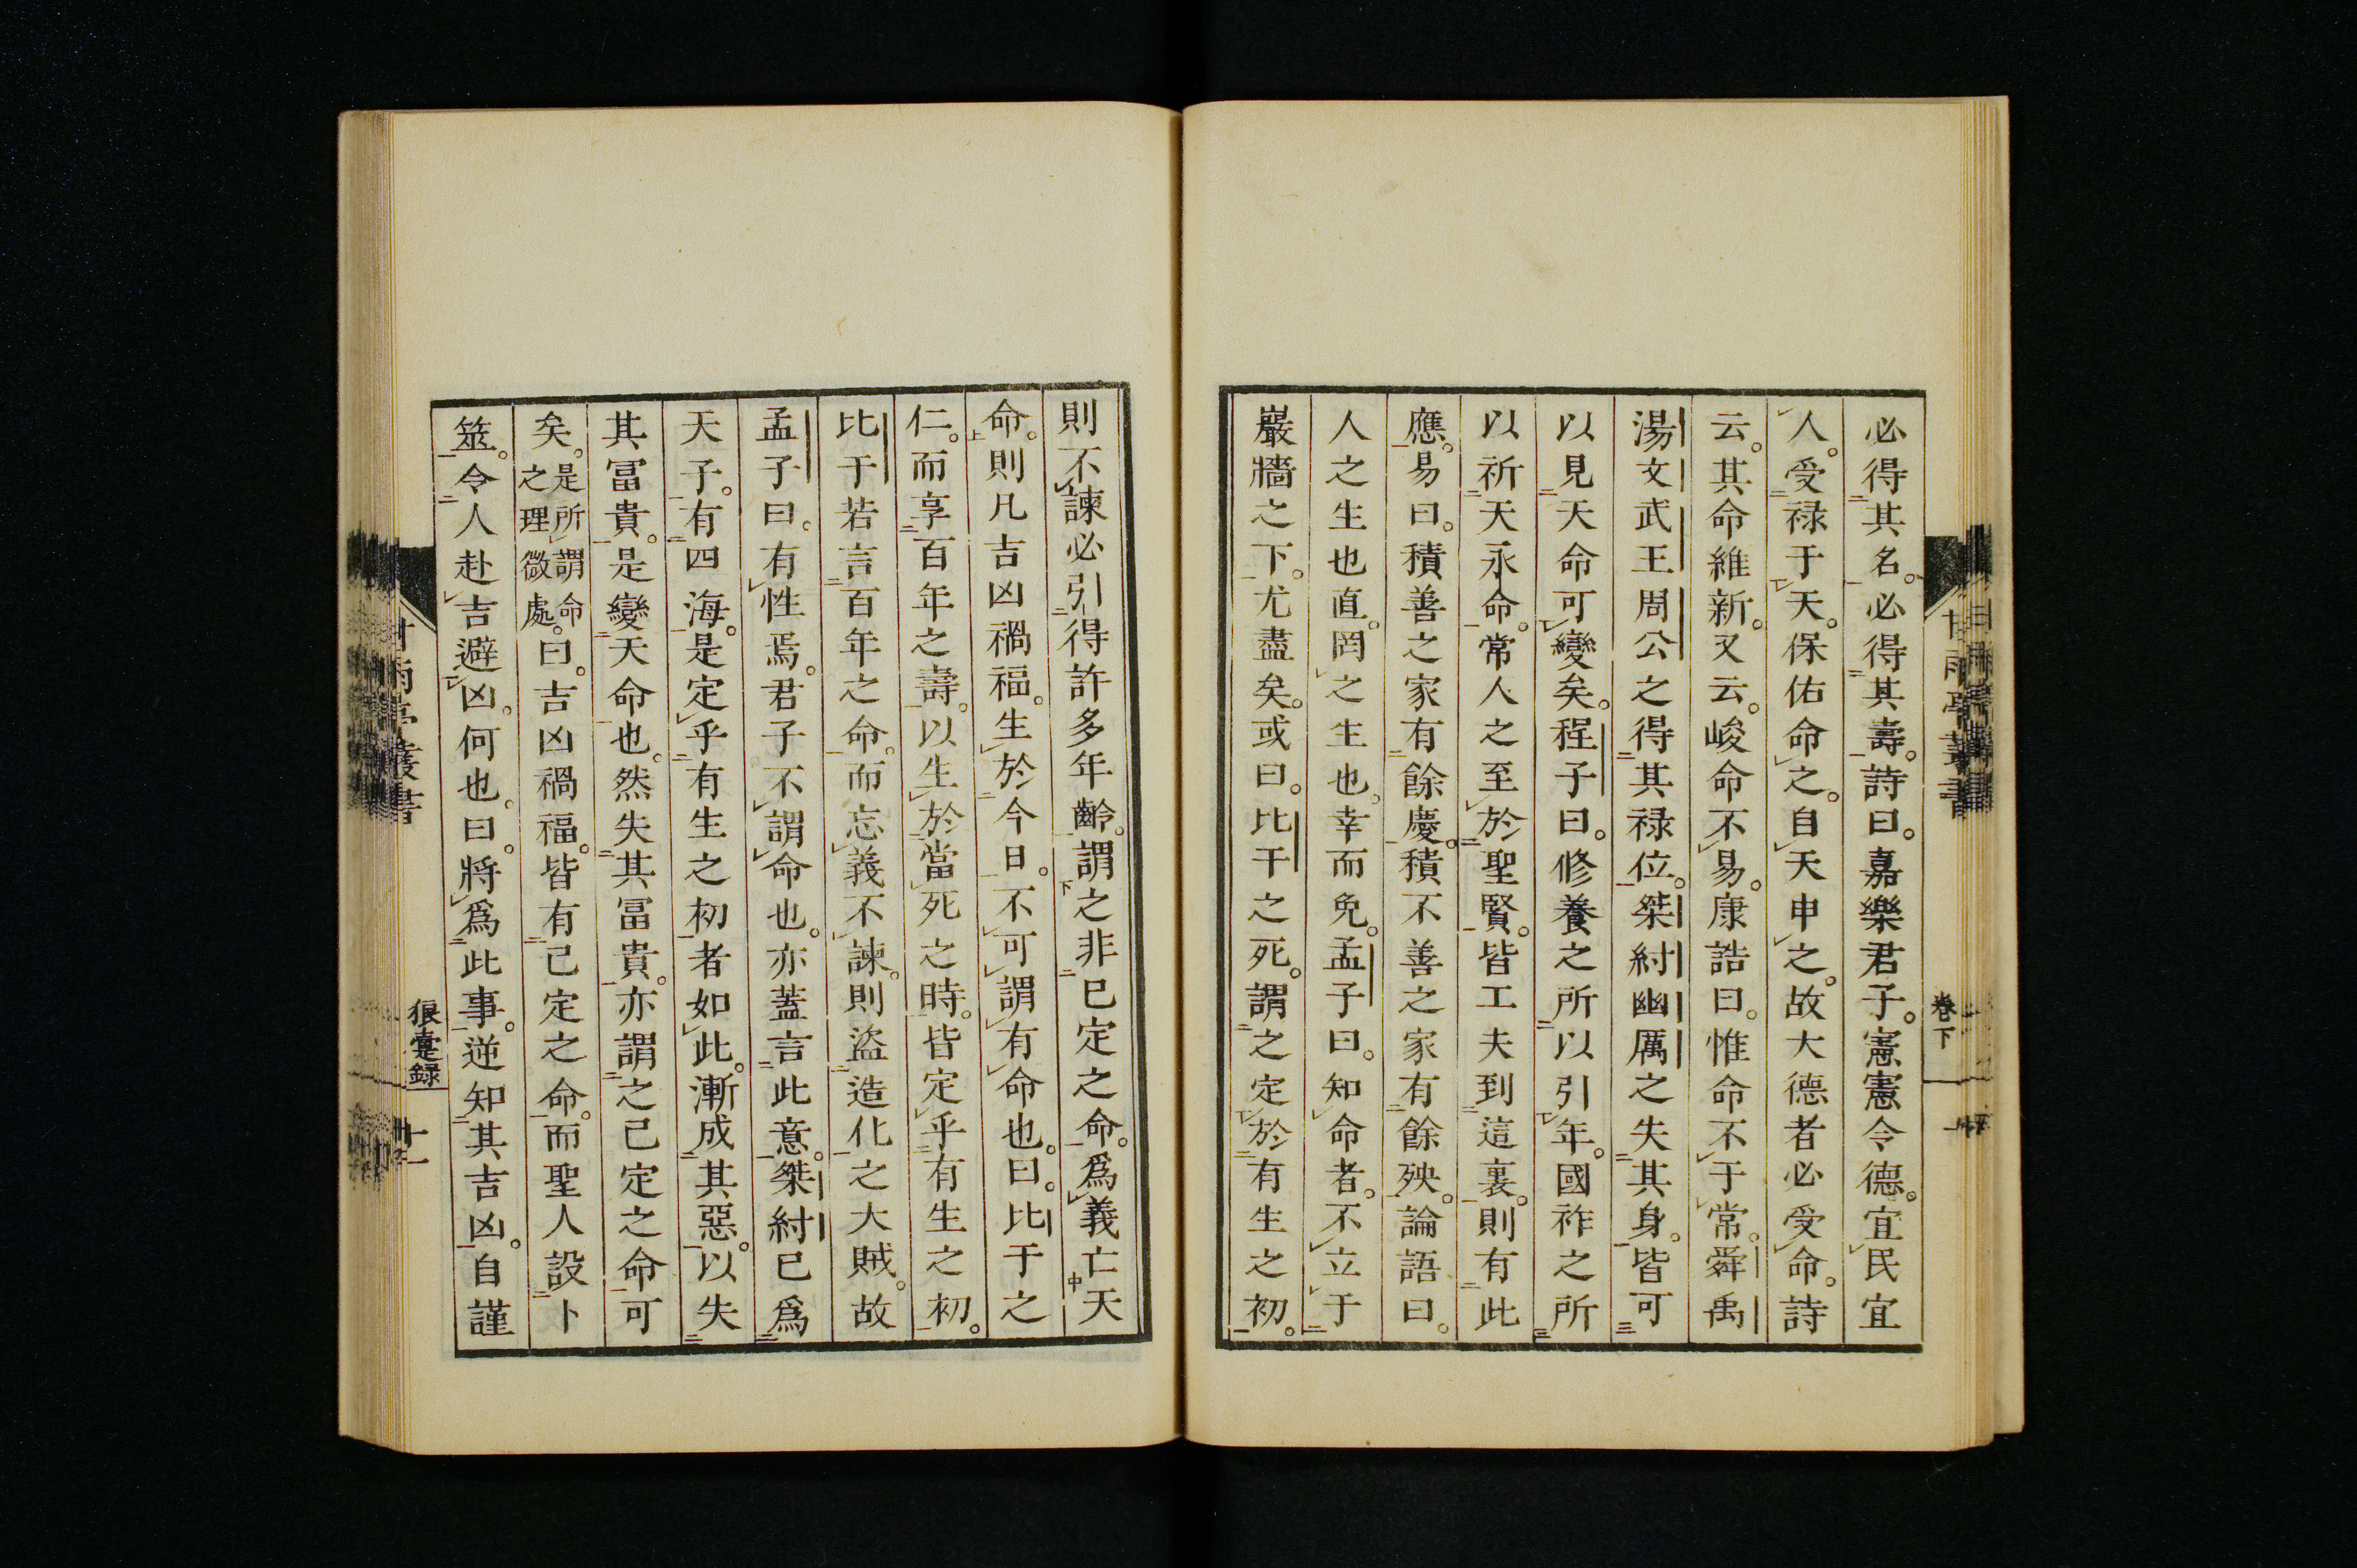 必得其名。必得其壽。詩曰。嘉樂君子。憲憲令德。宜民宜
人。受祿于天。保佑命之。自天申之。故大德者必受命。詩
云。其命維新。又云。峻命不易。康誥曰。惟命不于常。舜禹
湯文武王周公之得其祿位。桀紂幽厲之失其身。皆可
以見天命可變矣。程子曰。修養之所以引年。國祚之所
以祈天永命。常人之至於聖賢。皆工夫到這裏。則有此
應。易曰。積善之家有餘慶。積不善之家有餘殃。論語曰。
人之生也直。罔之生也。幸而免。孟子曰。知命者。不立于
巖牆之下。尤盡矣。或曰。比干之死。謂之定於有生之初。
卷下
則不諫必引得許多年齡。謂之非已定之命。爲義亡天
命。則凡吉凶禍福。生於今日。不可謂有命也。曰。比干之
仁。而享百年之壽。以生於當死之時。皆定乎有生之初。
比干若言百年之命。而忘義不諫。則盜造化之大賊。故
孟子曰。有性焉。君子不謂命也。亦蓋言此意。桀紂已爲
天子。有四海。是定乎有生之初者如此。漸成其惡。以失
其冨貴。是變天命也。然失其冨貴。亦謂之已定之命可
矣。是所謂命之理微處。曰。吉凶禍福。皆有已定之命。而聖人設卜
筮。令人赴吉避凶。何也。曰。將爲此事。逆知其吉凶。自謹
甘雨亭叢書
狼疐録
十一